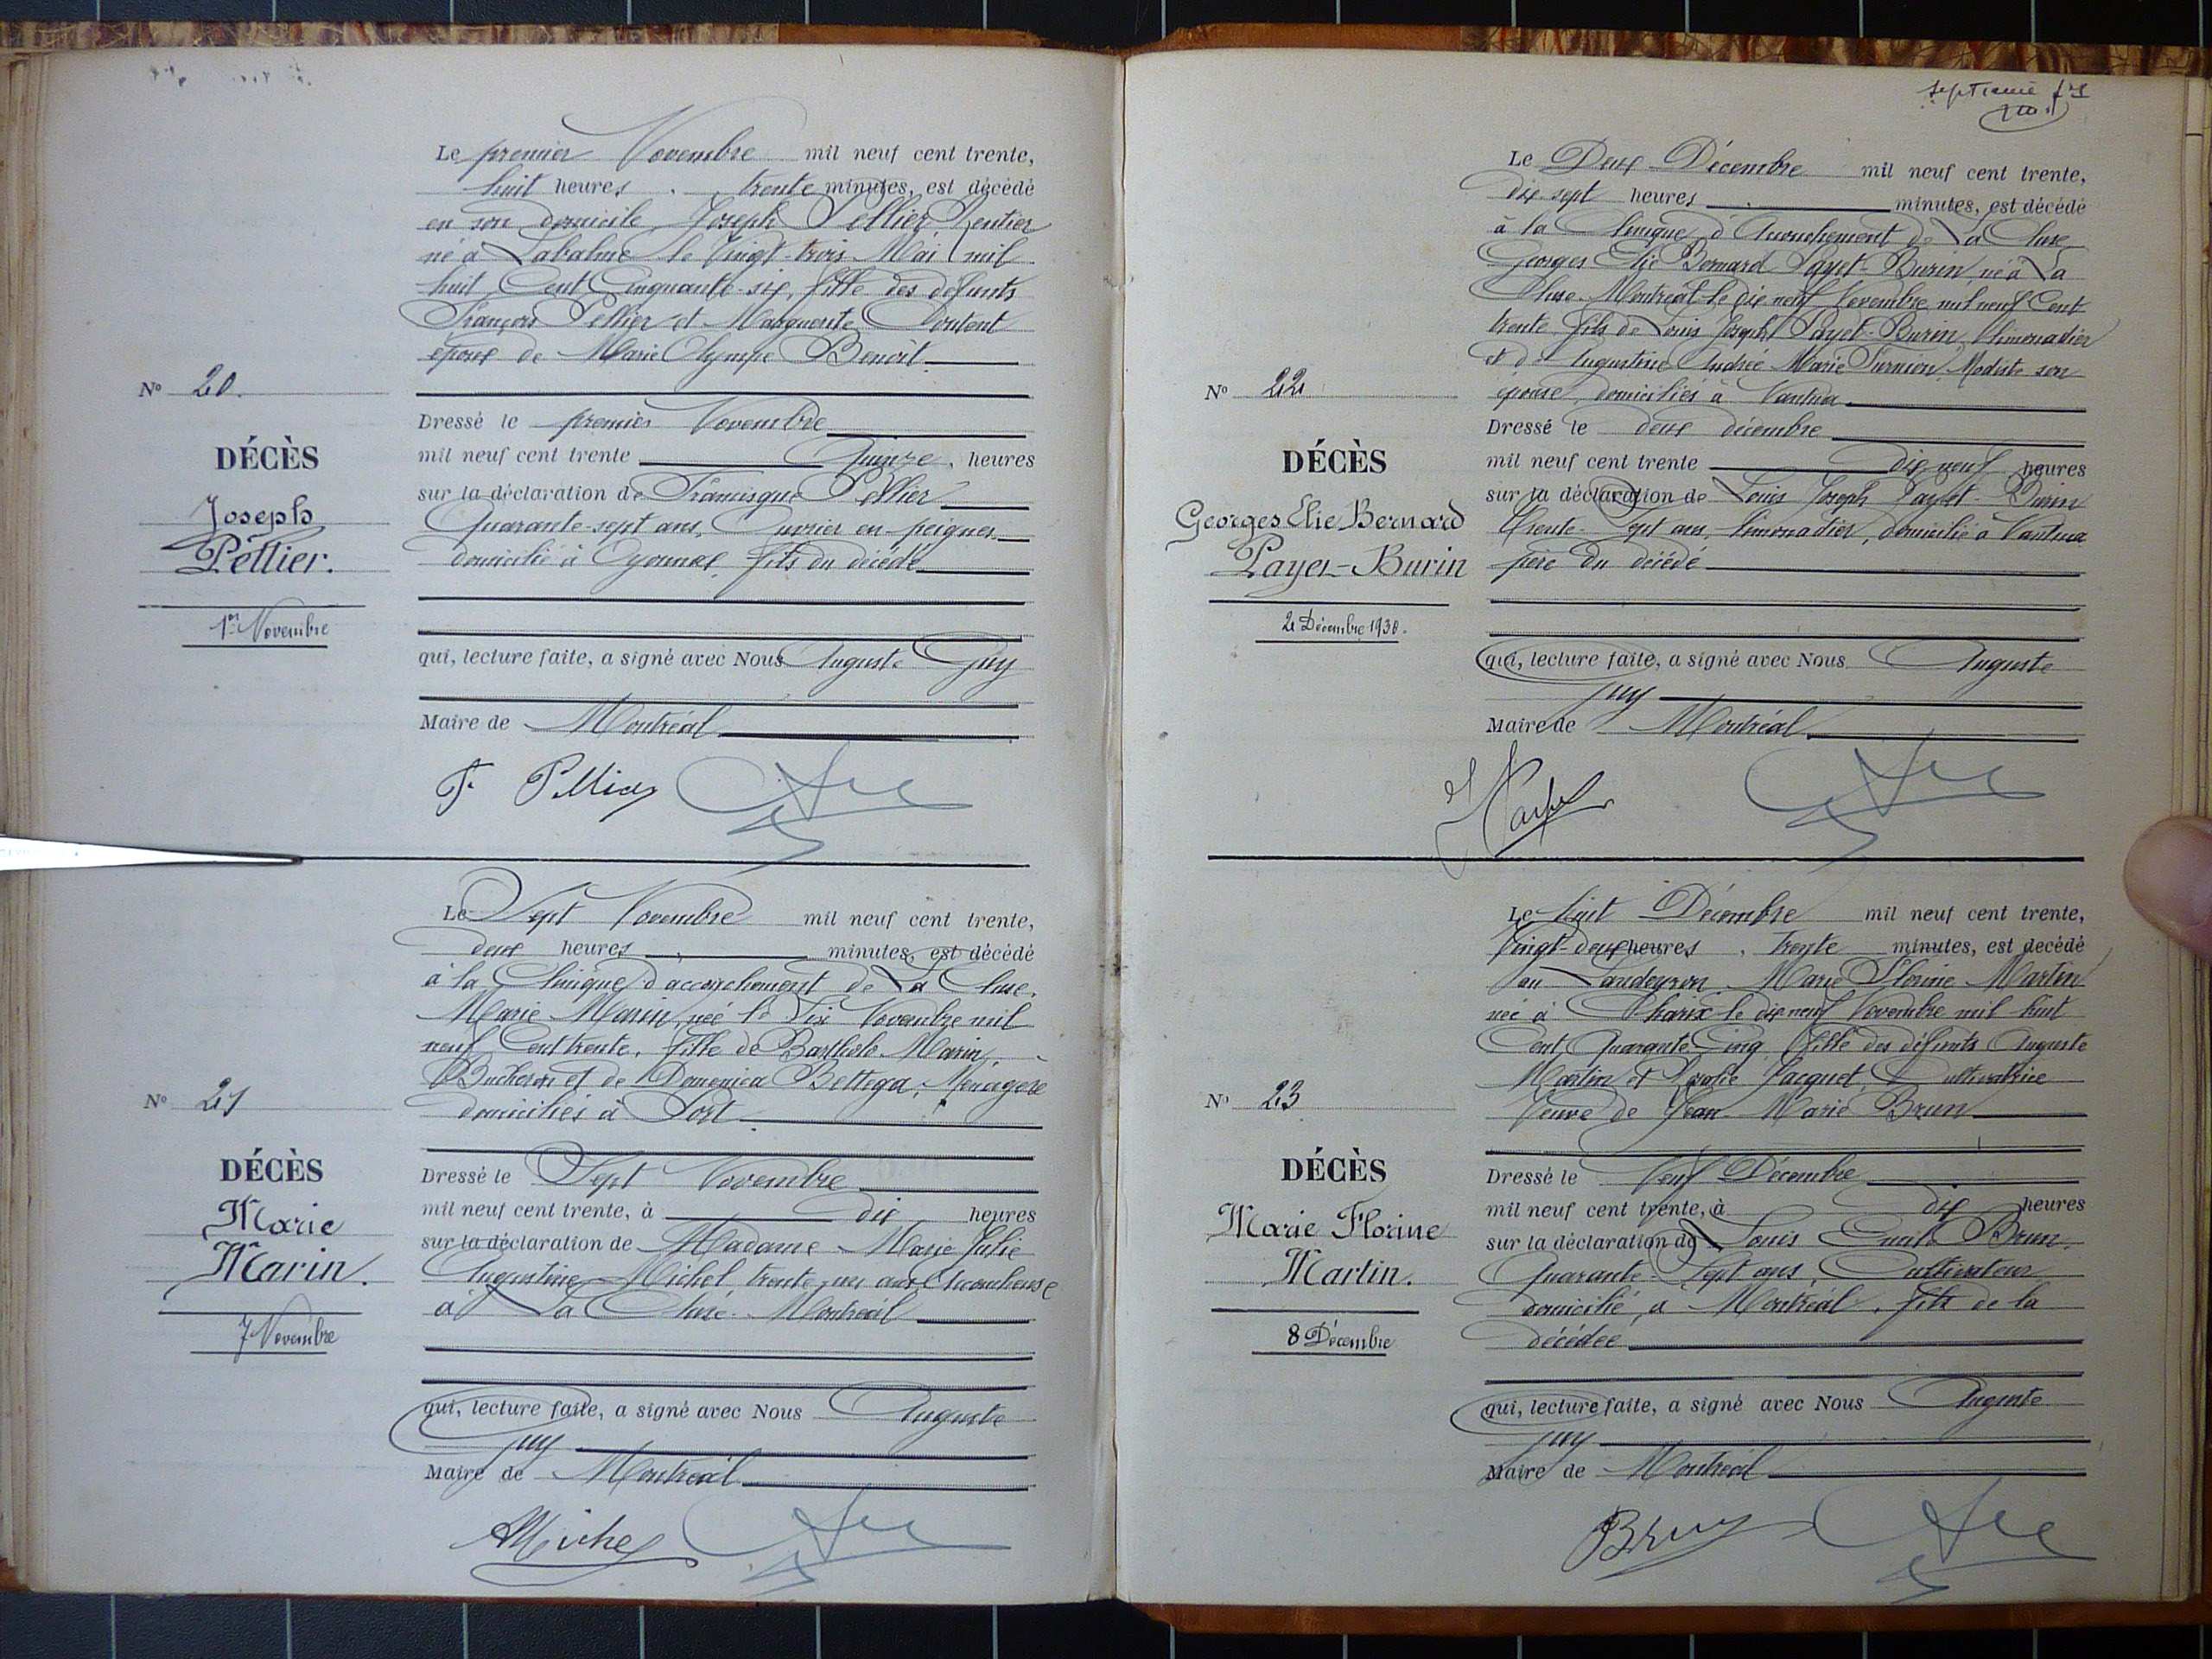 Le premier Novembre mil neuf cent trente,
huit heures, trente minutes, est décédé
en son domicile Joseph Pellier Rentier
né à Labalme le Vingt-trois Mai mil
huit Cent Cinquante-six, fille des défunts
François Pellier et Marguerite Content
époux de Marie Olympe Benoît
N° 20.
DÉCÈS
Joseph
Pellier.
1er Novembre
Dressé le premier Novembre
mil neuf cent trente Quinze, heures
sur la déclaration de Francisque Pellier
Quarante-sept ans, Ouvrier en peignes
domicilié à Oyonnax, fils du décédé
qui, lecture faite, a signé avec Nous Auguste Guy
Maire de Montréal
F. Pellier
Le Sept Novembre mil neuf cent trente,
deux heures, minutes, est décédé
à la Clinique d'accouchement de La Cluse,
Marie Marin, née le Six Novembre mil
neuf Cent trente, fille de Bartholo Marin,
Bucheron et de Domenica Bettega, Ménagère
domiciliés à Port
N° 21
DÉCÈS
Marie
Marin.
7 Novembre
Dressé le Sept Novembre
mil neuf cent trente, à dix heures
sur la déclaration de Madame Marie Julie
Augustine Michel, trente un ans Accoucheuse
à La Cluse-Montréal
qui, lecture faite, a signé avec Nous Auguste
Guy
Maire de Montréal
AMichel
septième
Le Deux Décembre mil neuf cent trente,
dix sept heures, minutes, est décédé
à la Clinique d'Accouchement de La Cluse
Georges Elie Bernard Payet-Burin, né à La
Cluse-Montréal le dix neuf Novembre mil neuf Cent
trente fils de Louis Joseph Payet-Burin, limonadier
et de Augustine Andrée Marie Modiste son
épouse, domiciliés à Nantua
N° 22
DÉCÈS
Georges Elie Bernard
Payet-Burin
2 Décembre 1930.
Dressé le deux décembre
mil neuf cent trente dix neuf heures
sur la déclaration de Louis Joseph Payet-Burin
trente-sept ans, limonadier, domicilié à Nantua
père du décédé
qui, lecture faite, a signé avec Nous Auguste
Guy
Maire de Montréal
Le huit Décembre mil neuf cent trente,
Vingt-deux heures, trente minutes, est décédé
au Landeyron Marie Florine Martin
née à Charix le dix neuf Novembre mil huit
Cent Quarante-Cinq fille des défunts Auguste
Martin et Jacquet, Cultivatrice
Veuve de Jean-Marie Brun
N° 23
DÉCÈS
Marie Florine
Martin.
8 Décembre
Dressé le Neuf Décembre
mil neuf cent trente, à dix heures
sur la déclaration de Louis Brun,
Quarante-Sept ans, Cultivateur
domicilié, à Montréal, fils de la
décédée
qui, lecture faite, a signé avec Nous Auguste
Guy
Maire de Montréal
Brun